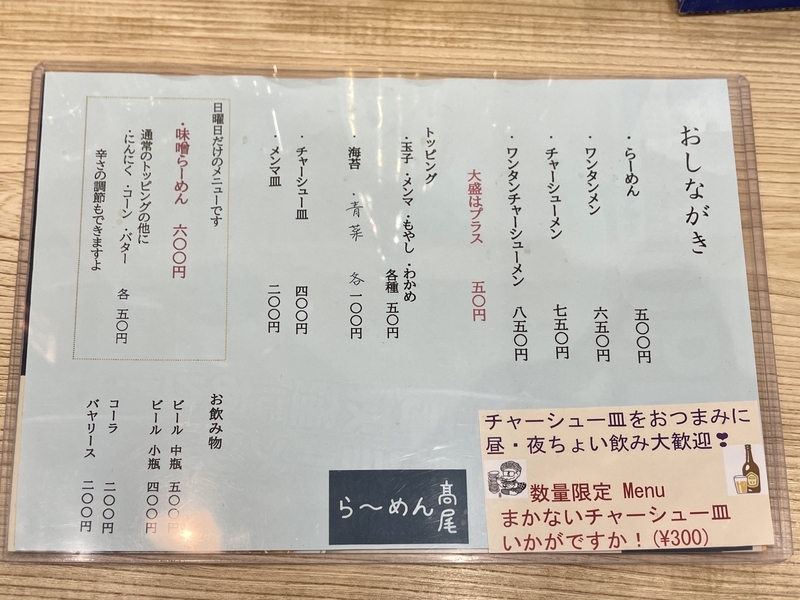 おしながき
・らーめん 五〇〇円
・ワンタンメン 六五〇円
・チャーシューメン 七五〇円
・ワンタンチャーシューメン 八五〇円
大盛はプラス 五〇円
トッピング
・玉子 ・メンマ ・もやし ・わかめ
各種 五〇円
・海苔 ・青菜 各一〇〇円
・チャーシュー皿 四〇〇円
・メンマ皿 二〇〇円
日曜日だけのメニューです
・味噌らーめん 六〇〇円
通常のトッピングの他に
・にんにく ・コーン ・バター 各 五〇円
辛さの調節もできますよ
お飲み物
ビール 中瓶 五〇〇円
ビール 小瓶 四〇〇円
コーラ 二〇〇円
バヤリース 二〇〇円
ら〜めん 髙尾
チャーシュー皿をおつまみに
昼・夜ちょい飲み大歓迎❣
数量限定 Menu
まかないチャーシュー皿
いかがですか！(¥300)